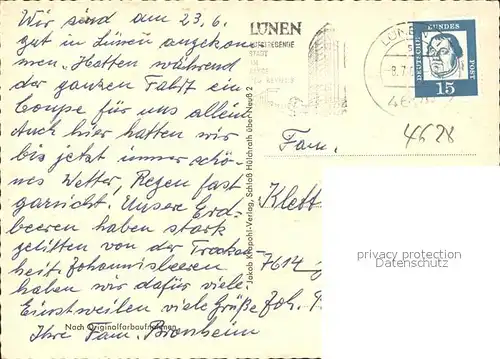 Wir sind am 23.6.
gut in Lünen angekom
men. Hatten während
der ganzen Fahrt ein
Coupe für uns allein
Auch hier hatten wir
bis jetzt immer schö-
nes Wetter, Regen fast
garnicht. Unsere Erd-
beeren haben stark
gelitten von der Trocken
heit. Johannisbeeren
haben wir dafür viele
Einstweilen viele Grüße
Ihre Fam. Bronheim
Nach Originalfarbaufnahmen
Jakob Krapohl-Verlag, Schloß Hülchrath über Neuß 2
LÜNEN
AUFSTREBENDE
STADT
LÜN
-8.7.
DEUTSCHE BUNDES POST
15
4628
Fam.
Klett
7614
Joh.
privacy protection
Datenschutz